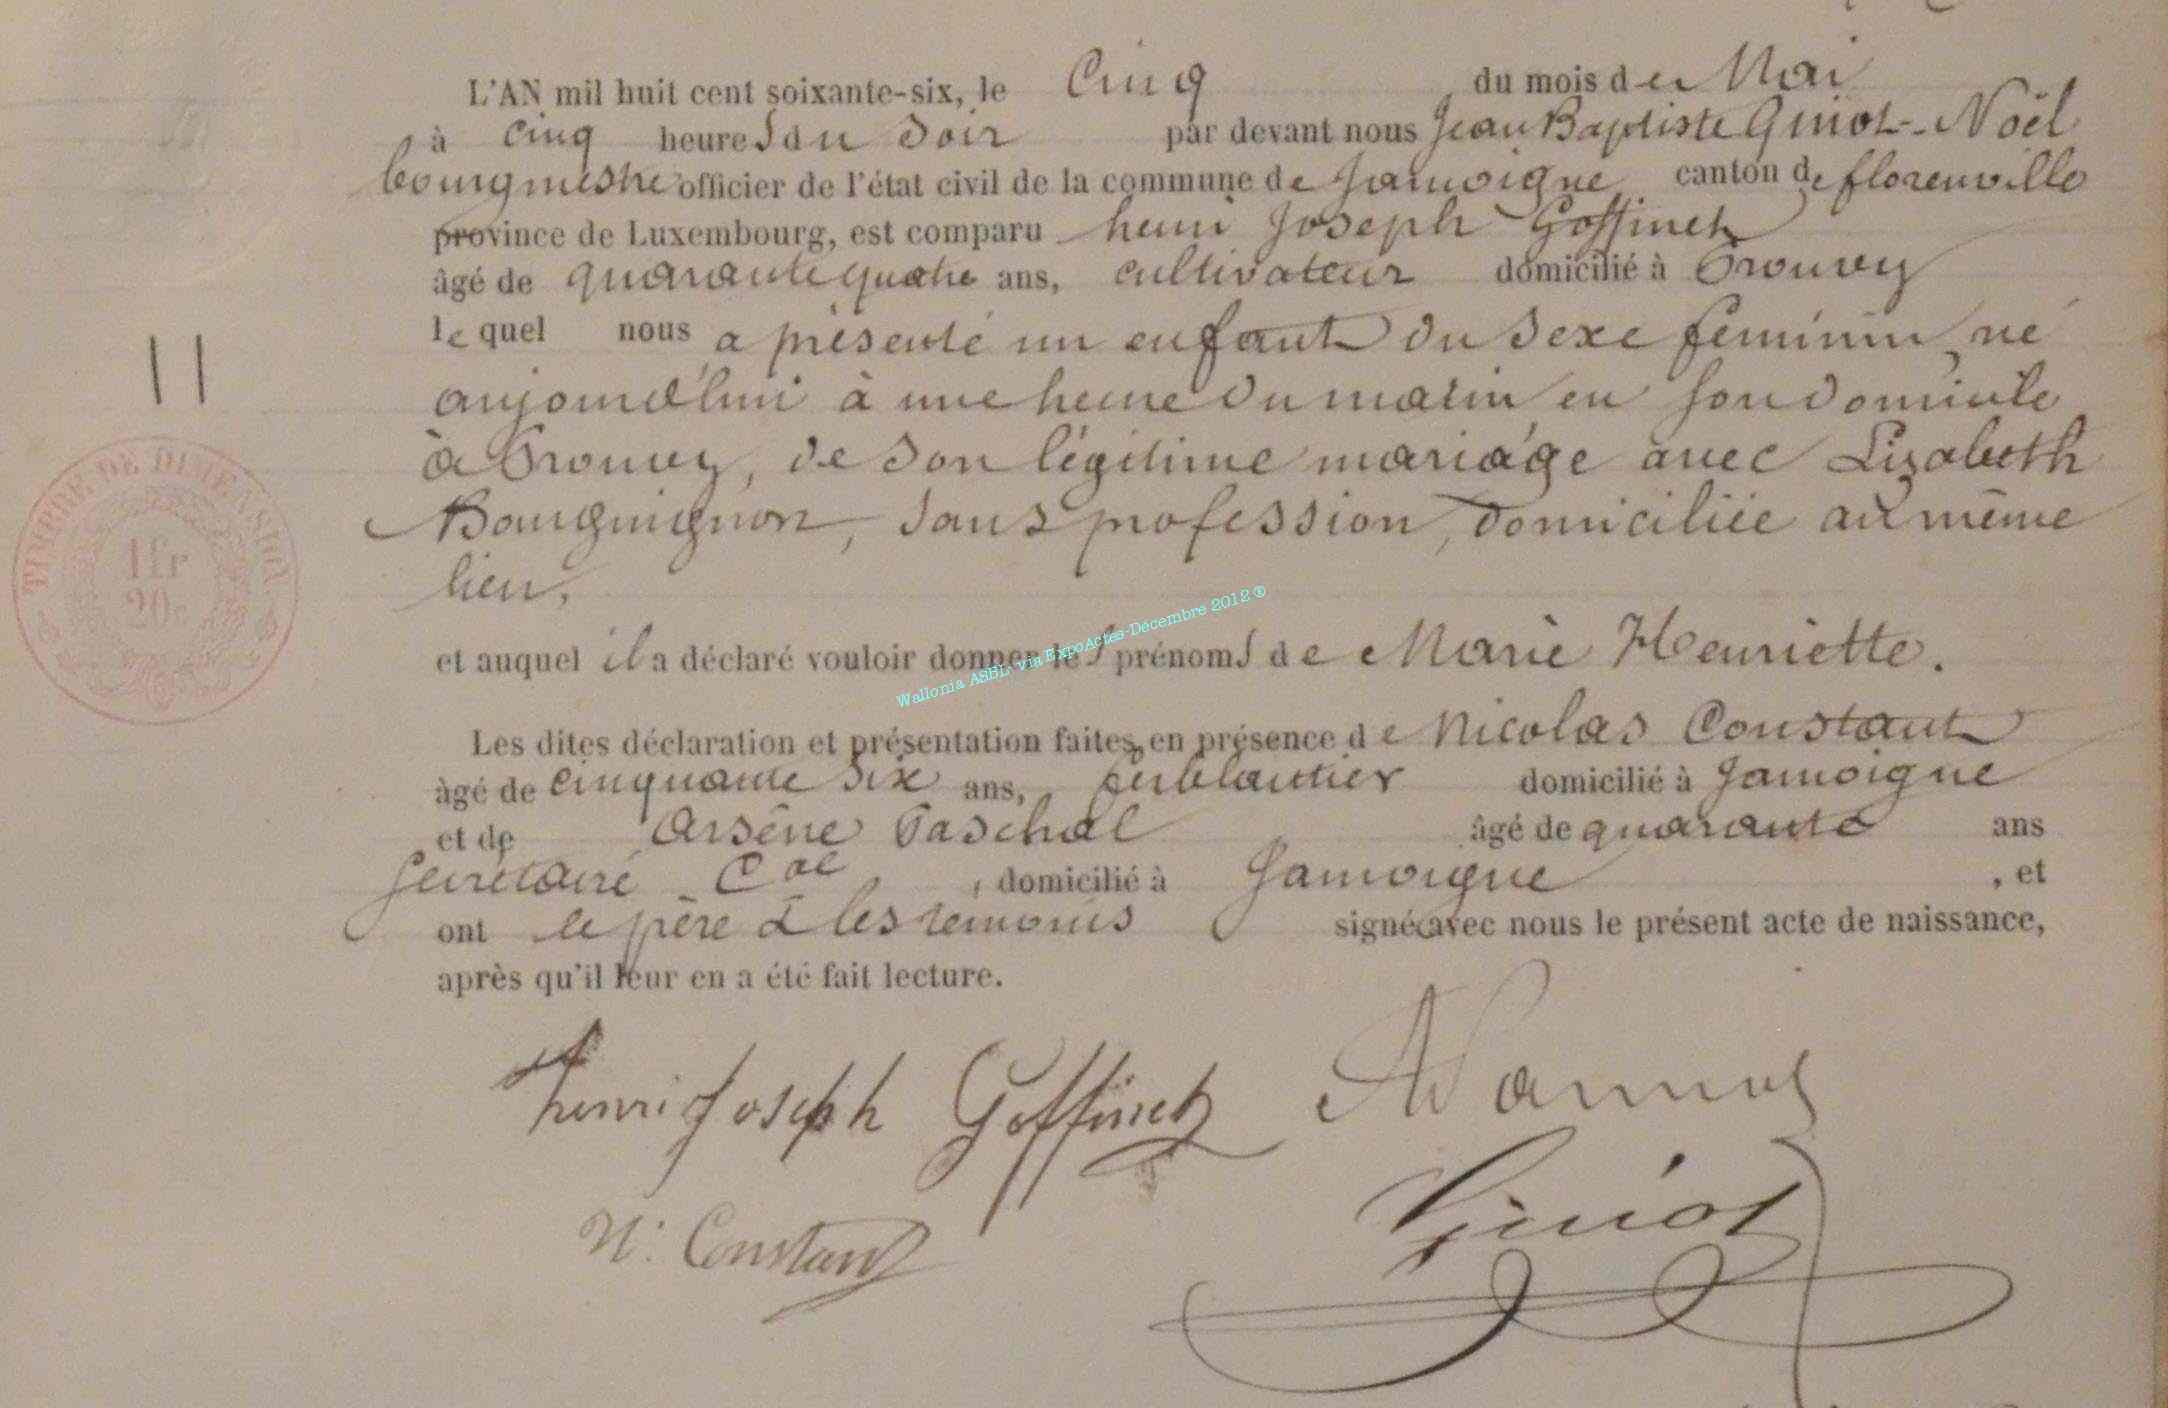 L'AN mil huit cent soixante-six, le Cinq du mois de Mai
à cinq heures du Soir par devant nous Jean Baptiste Guiot-Noël
bourgmestre officier de l'état civil de la commune de Jamoigne canton de florenville
province de Luxembourg, est comparu henri Joseph Goffinet
âgé de quarante quatre ans, cultivateur domicilié à Prouvy
lequel nous a présenté un enfant du Sexe féminin, né
aujourd'hui à une heure du matin en son domicile
à Prouvy, de son légitime mariage avec Lisabeth
Bourguignon, sans profession, domiciliée au même
lieu,
et auquel il a déclaré vouloir donner les prénoms de Marie Henriette.
Wallonia ASBL via ExpoActes-Décembre 2012 ®
Les dites déclaration et présentation faites en présence de Nicolas Constant
âgé de cinquante six ans, ferblantier domicilié à Jamoigne
et de Arsène Paschal âgé de quarante ans
Secrétaire Cal , domicilié à Jamoigne , et
ont le père & les témoins signé avec nous le présent acte de naissance,
après qu'il leur en a été fait lecture.
henri Joseph Goffinet
N. Constant
Guiot
II
TIMBRE DE DIMENSION
1fr
20c